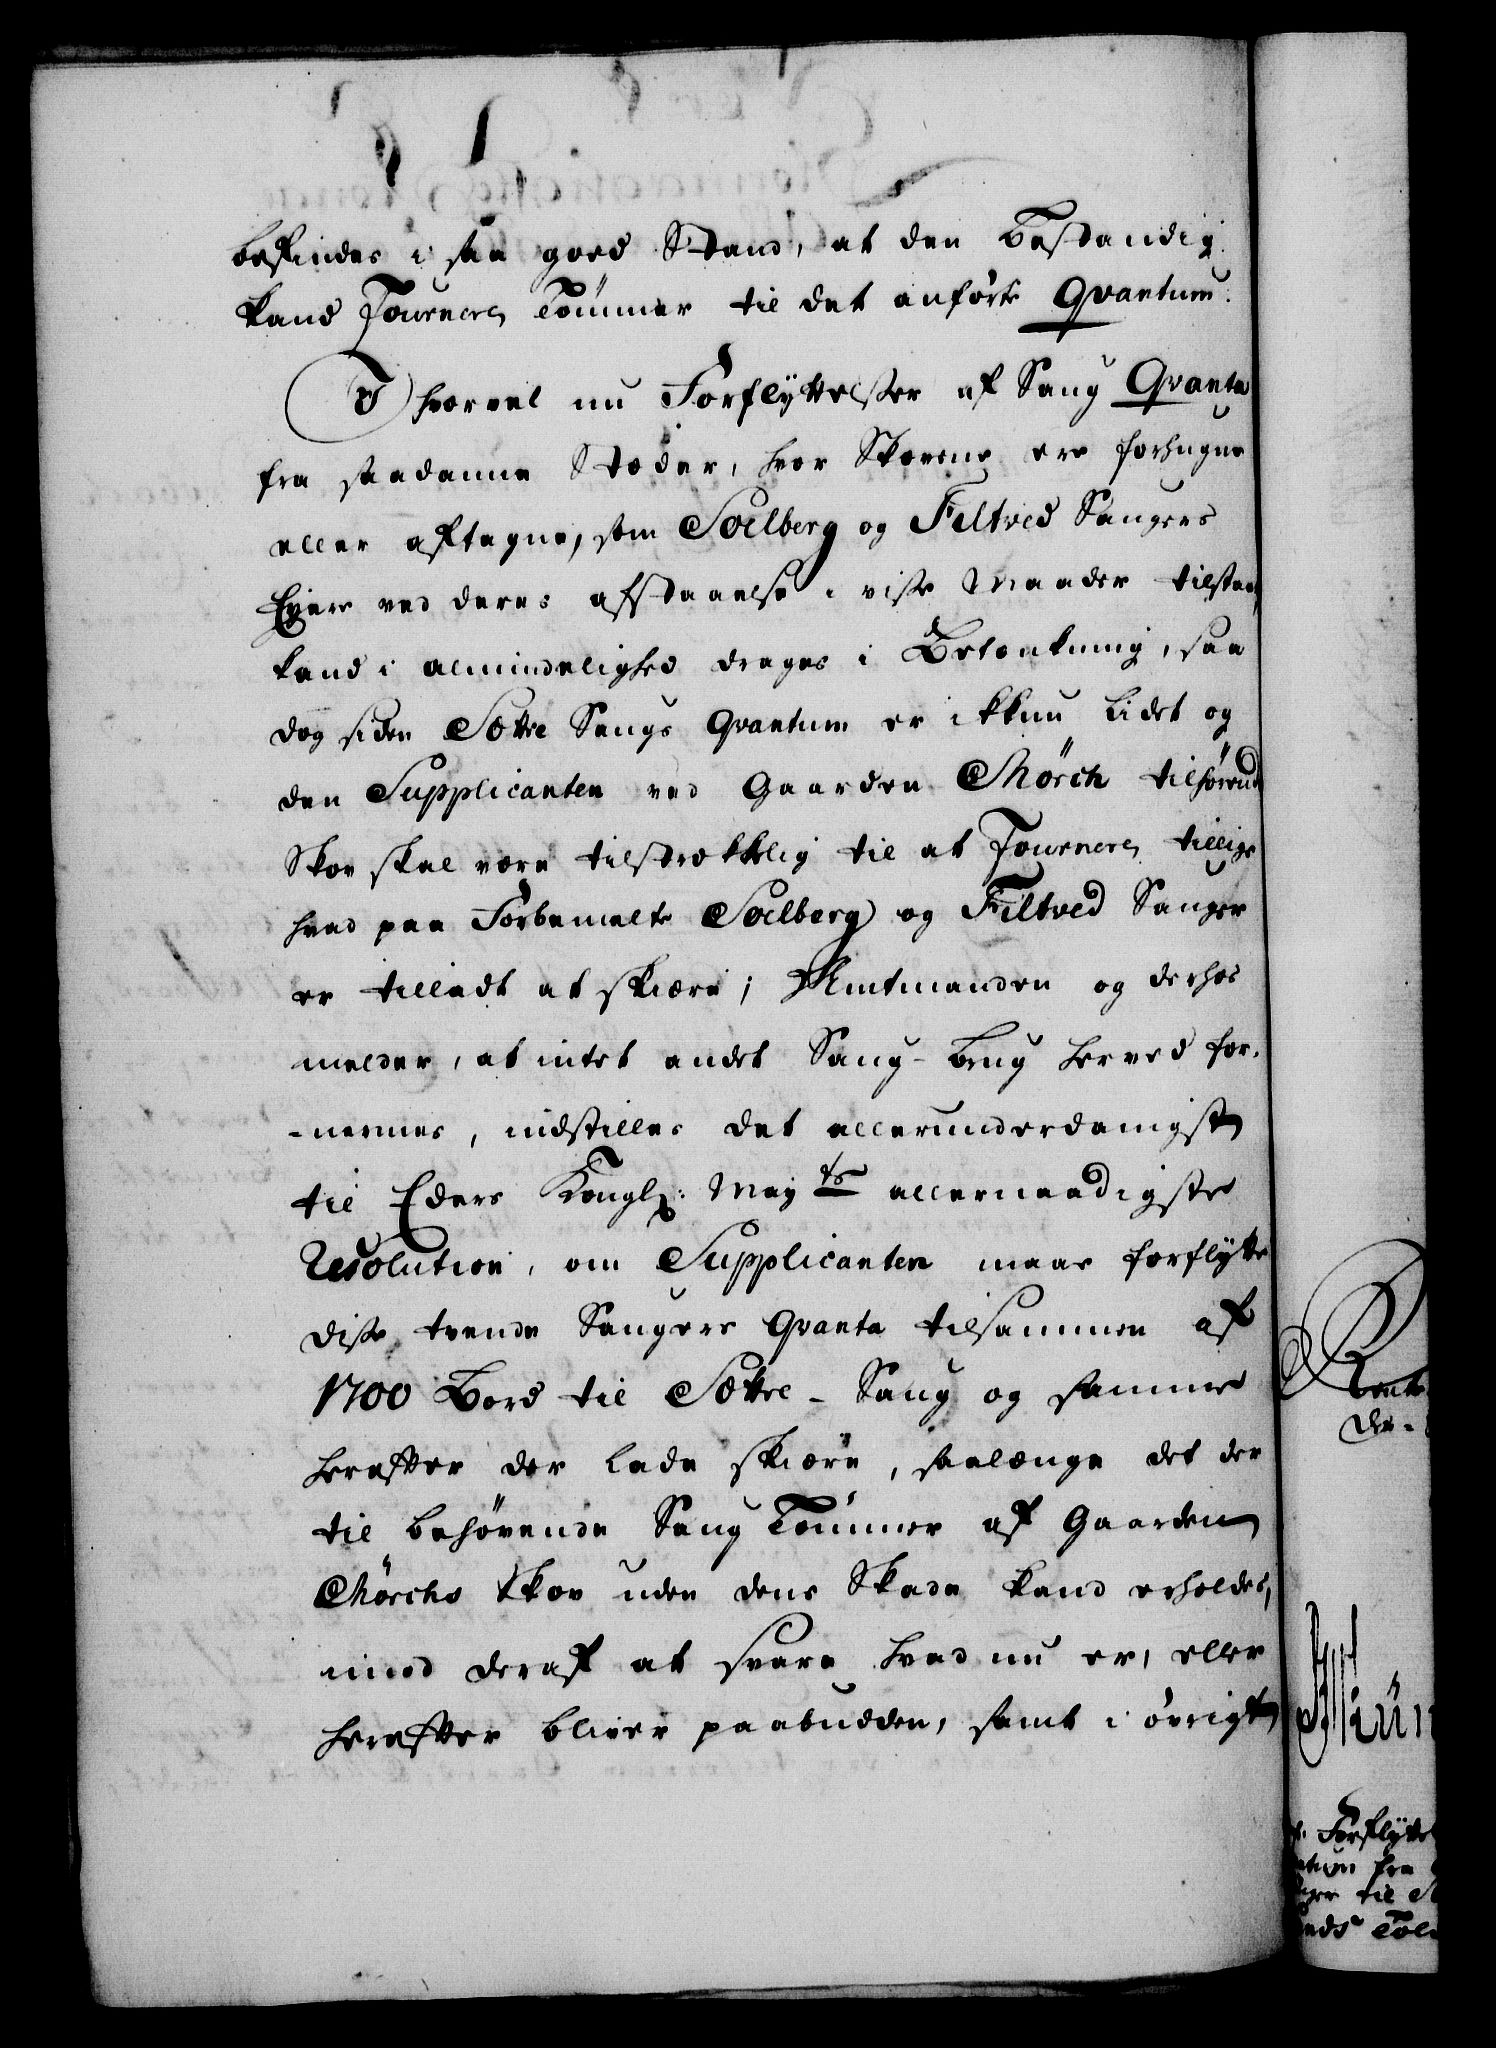 befindes i saa goed Stand, at den bestandig
kand Fournere Tömmer til det anførte Qvantum.
I hvorvel nu Forflyttelser af Saug Qvanta
fra saadanne Stæder, hvor Skovene ere forhugne
eller aftagne, som Soelberg og Filtved Saugers
Eyere ved deres afstaaelse i visse Maader tilstaae,
kand i almindelighed drages i Betænkning, saa
dog siden Sætre Saugs Qvantum er ikkun lidet og
den Supplicanten ved Gaarden Mörch tilhørende
Skov skal være tilstrekkelig til at Fournere tillige
hvad paa Forbemelte Soelberg og Filtved Sauger
er tilladt at skiære; Amtmanden og derhos
melder, at intet andet Saug-brug herved for-
-nermes, indstilles det allerunderdanigst
til Eders Kongl: May ts allernaadigste
Resolution, om Supplicanten maae forflytte
disse tvende Saugers Qvanta tilsammen af
1700 Bord til Sætre-Saug og samme
herefter der lade skiære, saalænge det der
til behøvende Saug Tömmer af Gaarden
Mörchs Skov uden dens Skade kand erholdes,
imod deraf at svare hvad nu er, eller
herefter bliver paabudden, samt i øvrigt
Forflytte
fra
til